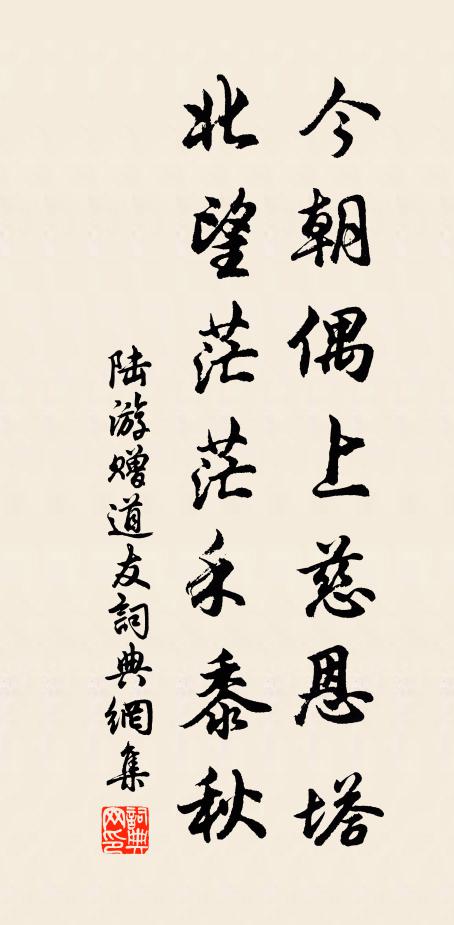 今朝偶上慈恩塔
北望茫茫禾黍秋
陆游赠道友詞典網集
詞典网印